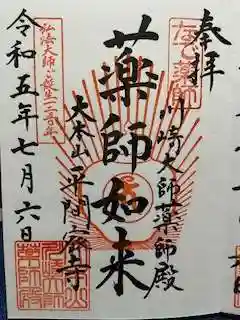 奉拝
川崎大師薬師殿
薬師如来
大本山平間寺
弘法大師ご誕生一二五〇年
令和五年七月六日